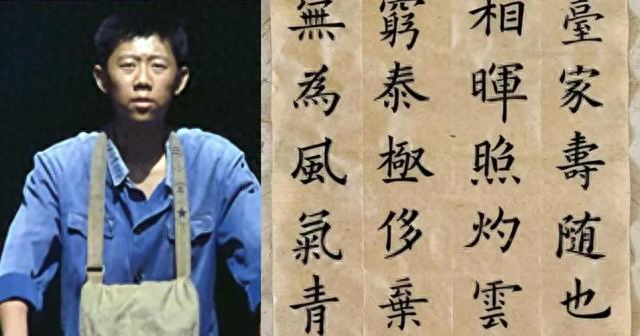 臺家壽随也
相暉照灼雲
窮泰極侈棄
無為風氣青